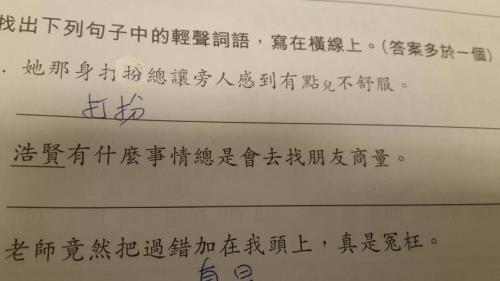 找出下列句子中的輕聲詞語，寫在橫線上。(答案多於一個)
. 她那身打扮總讓旁人感到有點兒不舒服。
打扮
浩賢有什麼事情總是會去找朋友商量。
老師竟然把過錯加在我頭上，真是冤枉。